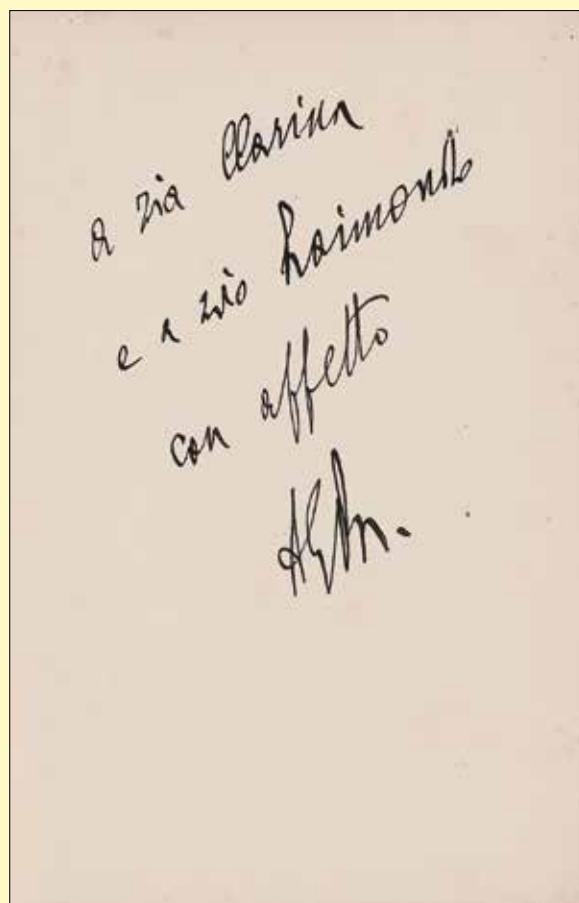 a zia Clarissa
e a zio Raimondo
con affetto